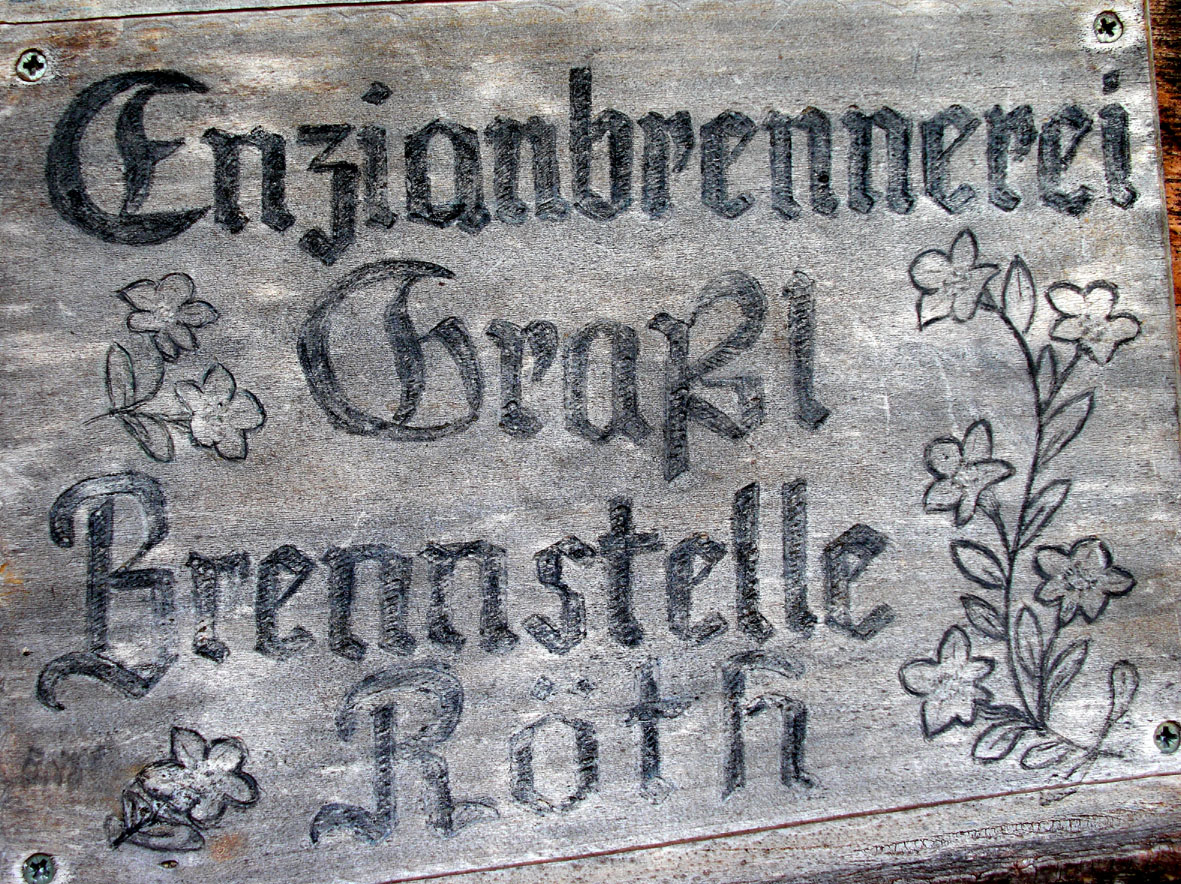 Enzianbrennerei
Graßl
Brennstelle
Röth